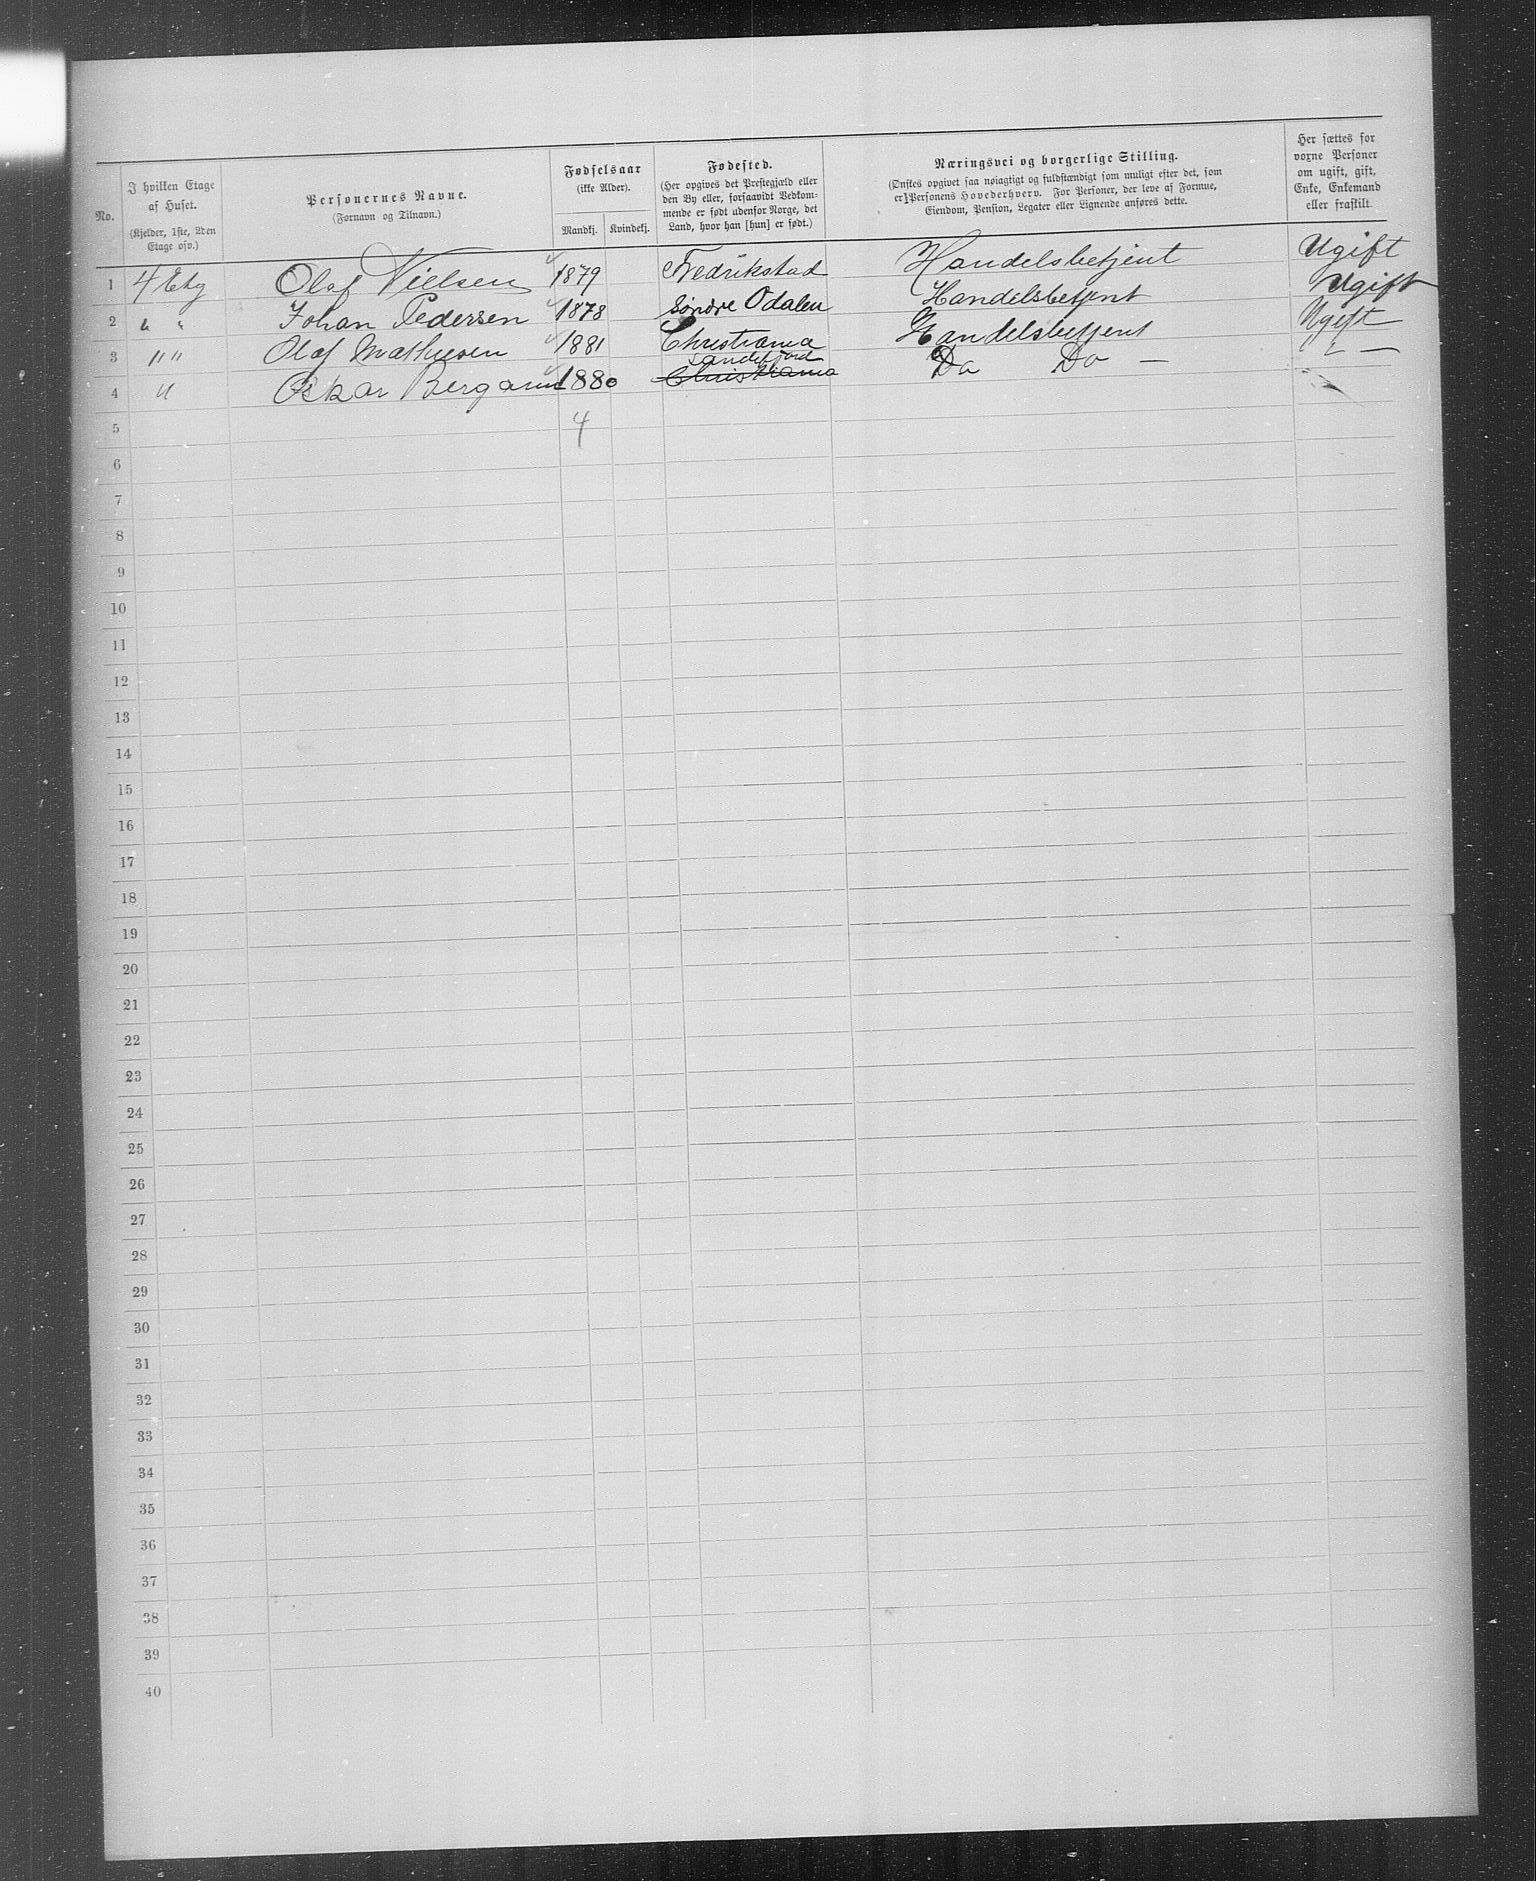 No.
I hvilken Etage af Huset. (Kjelder, 1ste, 2den Etage osv.)
Personernes Navne. (Fornavn og Tilnavn.)
Fødselsaar (ikke Alder).
Mandkj. Kvindekj.
Fødested. (Her opgives det Prestegjæld eller den By eller, forsaavidt Vedkommende er født udenfor Norge, det Land, hvor han [hun] er født.)
Næringsvei og borgerlige Stilling. (Ønskes opgivet saa nøiagtigt og fuldstændigt som muligt efter det, som er Personens Hovederhverv. For Personer, der leve af Formue, Eiendom, Pension, Legater eller Lignende anføres dette.)
Her sættes for voxne Personer om ugift, gift, Enke, Enkemand eller fraskilt.
1 4 Etg Olaf Nielsen 1879 Fredrikstad Handelsbetjent Ugift
2 " " Johan Pedersen 1878 Søndre Odalen Handelsbetjent Ugift
3 " " Olaf Mathiesen 1881 Christiania Handelsbetjent Ugift
Sandefjord
4 " Oskar 1880 Christiania Do Do — " —
5 4
6
7
8
9
10
11
12
13
14
15
16
17
18
19
20
21
22
23
24
25
26
27
28
29
30
31
32
33
34
35
36
37
38
39
40